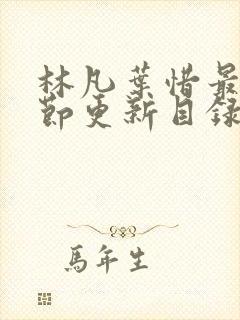 林凡葉惜最
節更新目録
馬年生